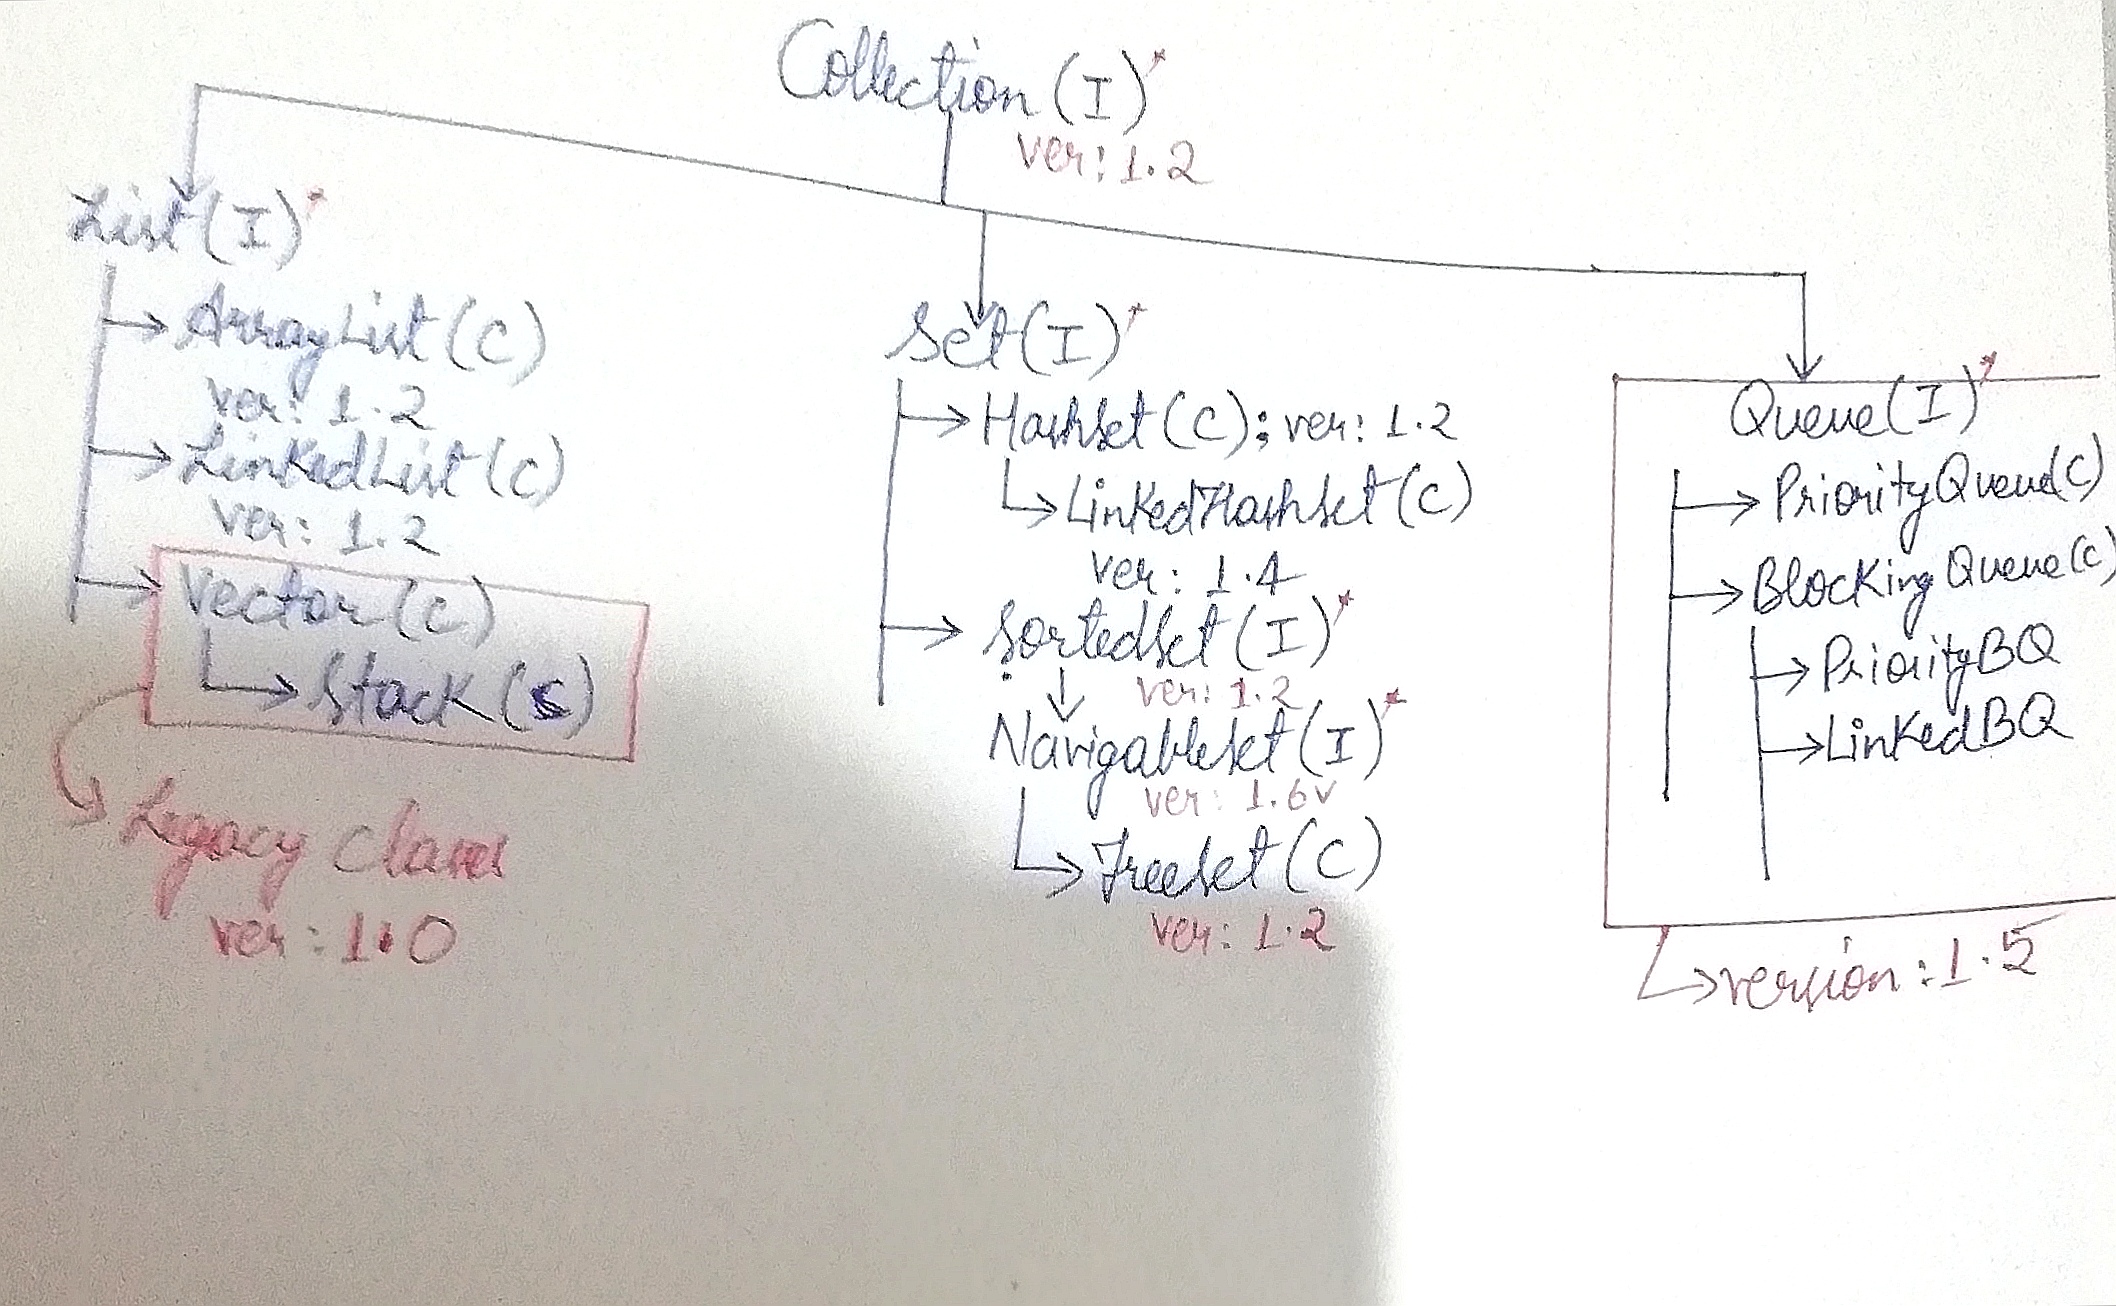 Collection (I)*
ver: 1.2
List (I)*
ArrayList (C)
ver: 1.2
LinkedList (C)
ver: 1.2
Vector (C)
Stack (C)
Legacy Classes
ver: 1.0
Set (I)*
HashSet (C); ver: 1.2
LinkedHashSet (C)
ver: 1.4
SortedSet (I)*
ver: 1.2
NavigableSet (I)*
ver: 1.6v
TreeSet (C)
ver: 1.2
Queue (I)*
PriorityQueue(C)
Blocking Queue(C)
PriorityBQ
LinkedBQ
version: 1.5